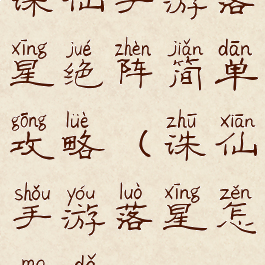 诛仙手游落
xīng jué zhèn jiǎn dān
星绝阵简单
gōng lüè zhū xiān
攻略（诛仙
shǒu yóu luò xīng zěn
手游落星怎
me dǎ